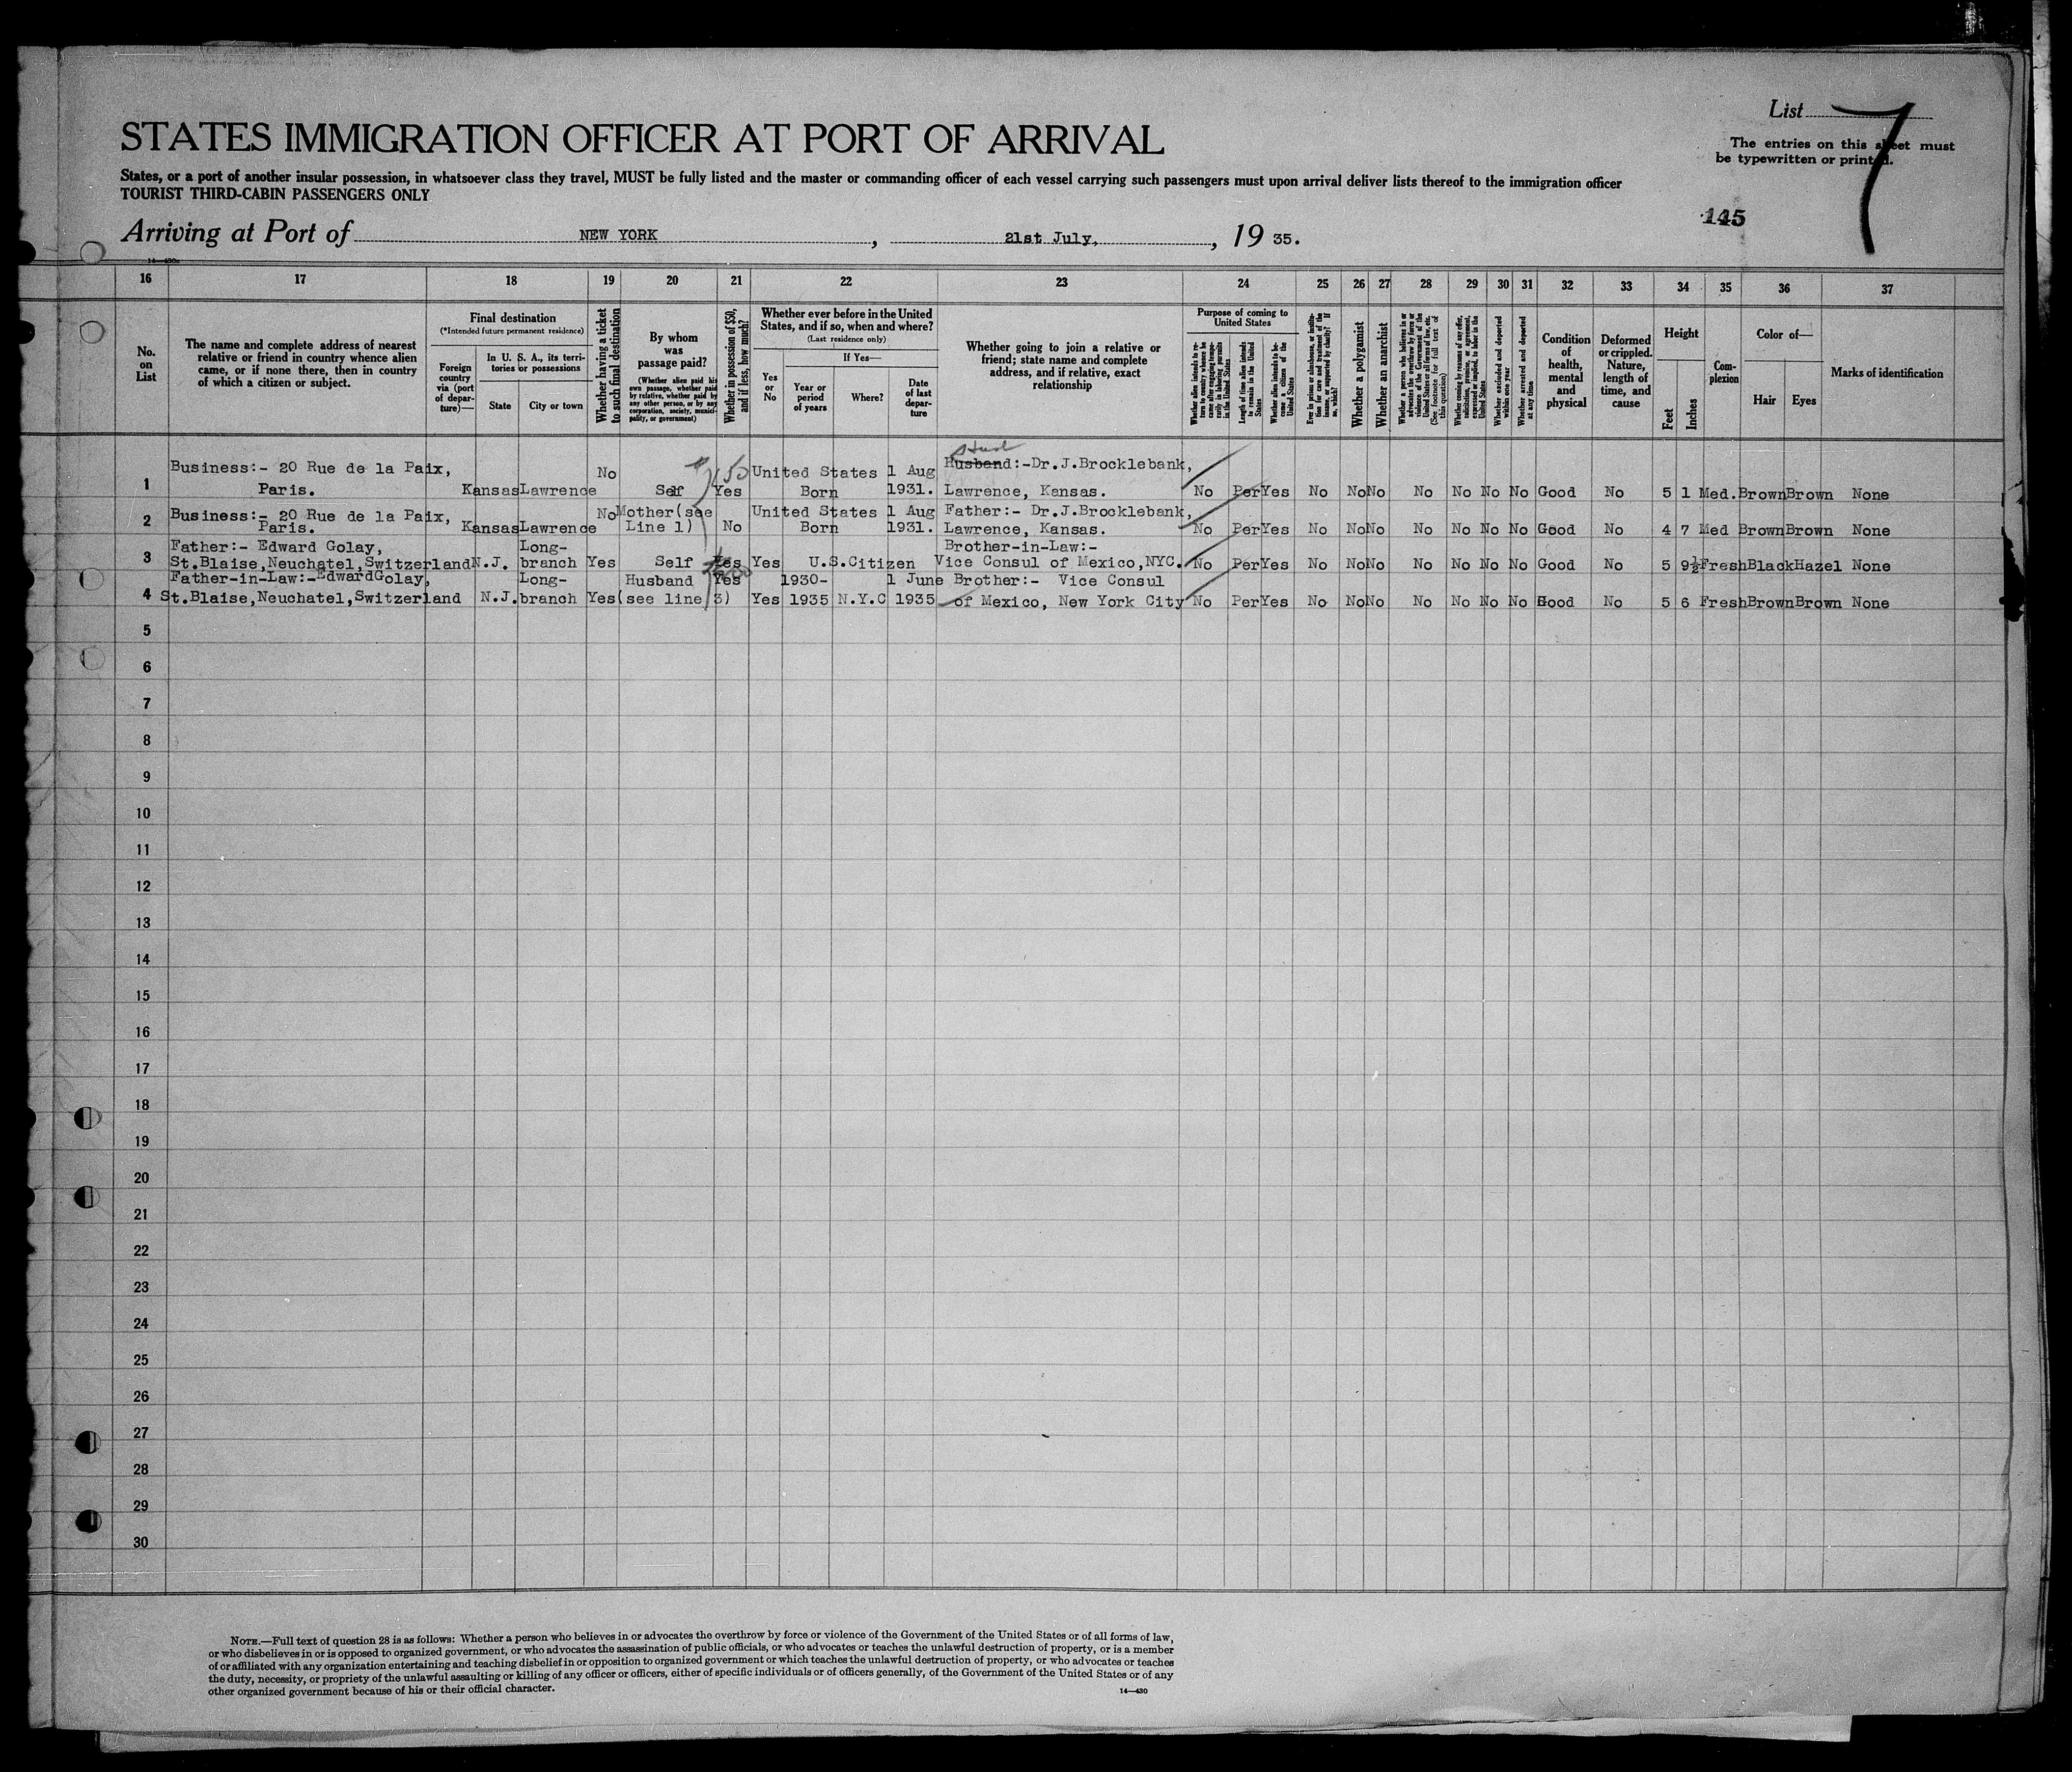 List 7
STATES IMMIGRATION OFFICER AT PORT OF ARRIVAL
The entries on this sheet must
be typewritten or printed.
States, or a port of another insular possession, in whatsoever class they travel, MUST be fully listed and the master or commanding officer of each vessel carrying such passengers must upon arrival deliver lists thereof to the immigration officer
TOURIST THIRD-CABIN PASSENGERS ONLY
145
Arriving at Port of NEW YORK, 21st July, 19 35.
16 17 18 19 20 21 22 23 24 25 26 27 28 29 30 31 32 33 34 35 36 37
No. on List
The name and complete address of nearest
relative or friend in country whence alien
came, or if none there, then in country
of which a citizen or subject.
Final destination
(*Intended future permanent residence)
Foreign country via (port of departure)—
In U. S. A., its territories or possessions
State City or town
Whether having a ticket to such final destination
By whom was passage paid?
(Whether alien paid his own passage, whether paid by relative, whether paid by any other person, or by any corporation, society, municipality, or government)
Whether in possession of $50, and if less, how much?
Whether ever before in the United
States, and if so, when and where?
(Last residence only)
Yes or No
If Yes—
Year or period of years
Where?
Date of last departure
Whether going to join a relative or
friend; state name and complete
address, and if relative, exact
relationship
Purpose of coming to United States
Length of time alien intends to remain in the United States
Whether alien intends to become a citizen of the United States
Whether a polygamist
Whether an anarchist
Whether excluded and deported within one year
Whether arrested and deported at any time
Condition of health, mental and physical
Deformed or crippled. Nature, length of time, and cause
Height
Feet Inches
Complexion
Color of—
Hair Eyes
Marks of identification
1 Business:- 20 Rue de la Paix, Paris. Kansas Lawrence No Self 50 Yes United States Born 1 Aug 1931. Husband:-Dr.J.Brocklebank, Lawrence, Kansas. No Per Yes No No No No No No No Good No 5 1 Med. Brown Brown None
2 Business:- 20 Rue de la Paix, Paris. Kansas Lawrence No Mother (see Line 1) No United States Born 1 Aug 1931. Father:- Dr.J.Brocklebank, Lawrence, Kansas. No Per Yes No No No No No No No Good No 4 7 Med Brown Brown None
3 Father:- Edward Golay, St.Blaise,Neuchatel,Switzerland N.J. Long-branch Yes Self Yes Yes U.S.Citizen Brother-in-Law:- Vice Consul of Mexico,NYC. No Per Yes No No No No No No No Good No 5 9½ Fresh Black Hazel None
4 Father-in-Law:-EdwardGolay, St.Blaise,Neuchatel,Switzerland N.J. Long-branch Yes Husband (see line 3) Yes Yes 1930-1935 N.Y.C 1 June 1935 Brother:- Vice Consul of Mexico, New York City No Per Yes No No No No No No No Good No 5 6 Fresh Brown Brown None
5
6
7
8
9
10
11
12
13
14
15
16
17
18
19
20
21
22
23
24
25
26
27
28
29
30
NOTE.—Full text of question 28 is as follows: Whether a person who believes in or advocates the overthrow by force or violence of the Government of the United States or of all forms of law,
or who disbelieves in or is opposed to organized government, or who advocates the assassination of public officials, or who advocates or teaches the unlawful destruction of property, or is a member
of or affiliated with any organization entertaining and teaching disbelief in or opposition to organized government or which teaches the unlawful destruction of property, or who advocates or teaches
the duty, necessity, or propriety of the unlawful assaulting or killing of any officer or officers, either of specific individuals or of officers generally, of the Government of the United States or of any
other organized government because of his or their official character.
14—430